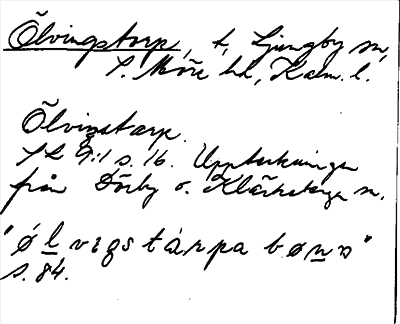 Ölvingstorp, t, Ljungby sn,
S. Möre hd, Kalm. l.
Ölvingstorp.
SL 9:1 s. 16. Uppteckningar
från Dörby o. Kläckeberga sn.
"ølvıgstárpa bøn̲ɒ"
s. 84.